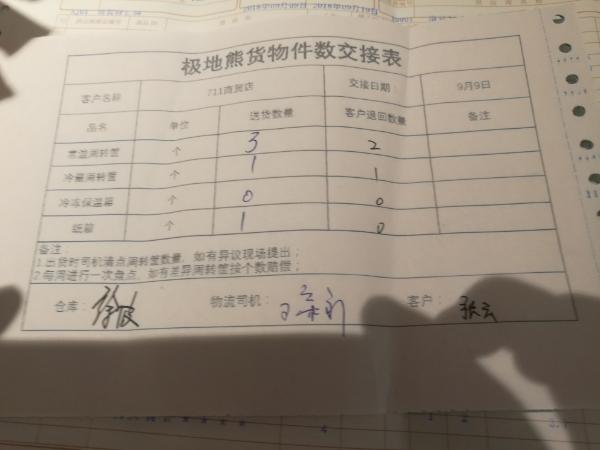 2018年09月09日 2018年09月19日
极地熊货物件数交接表
客户名称 711商贸店 交接日期: 9月9日
品名 单位 送货数量 客户退回数量 备注
常温周转筐 个 3 2
冷藏周转筐 个 1 1
冷冻保温箱 个 0 0
纸箱 个 1 0
备注:
1.出货时司机清点周转筐数量,如有异议现场提出;
2.每周进行一次盘点,如有差异周转筐按个数赔偿;
仓库: 徐波 物流司机: 客户: 张云